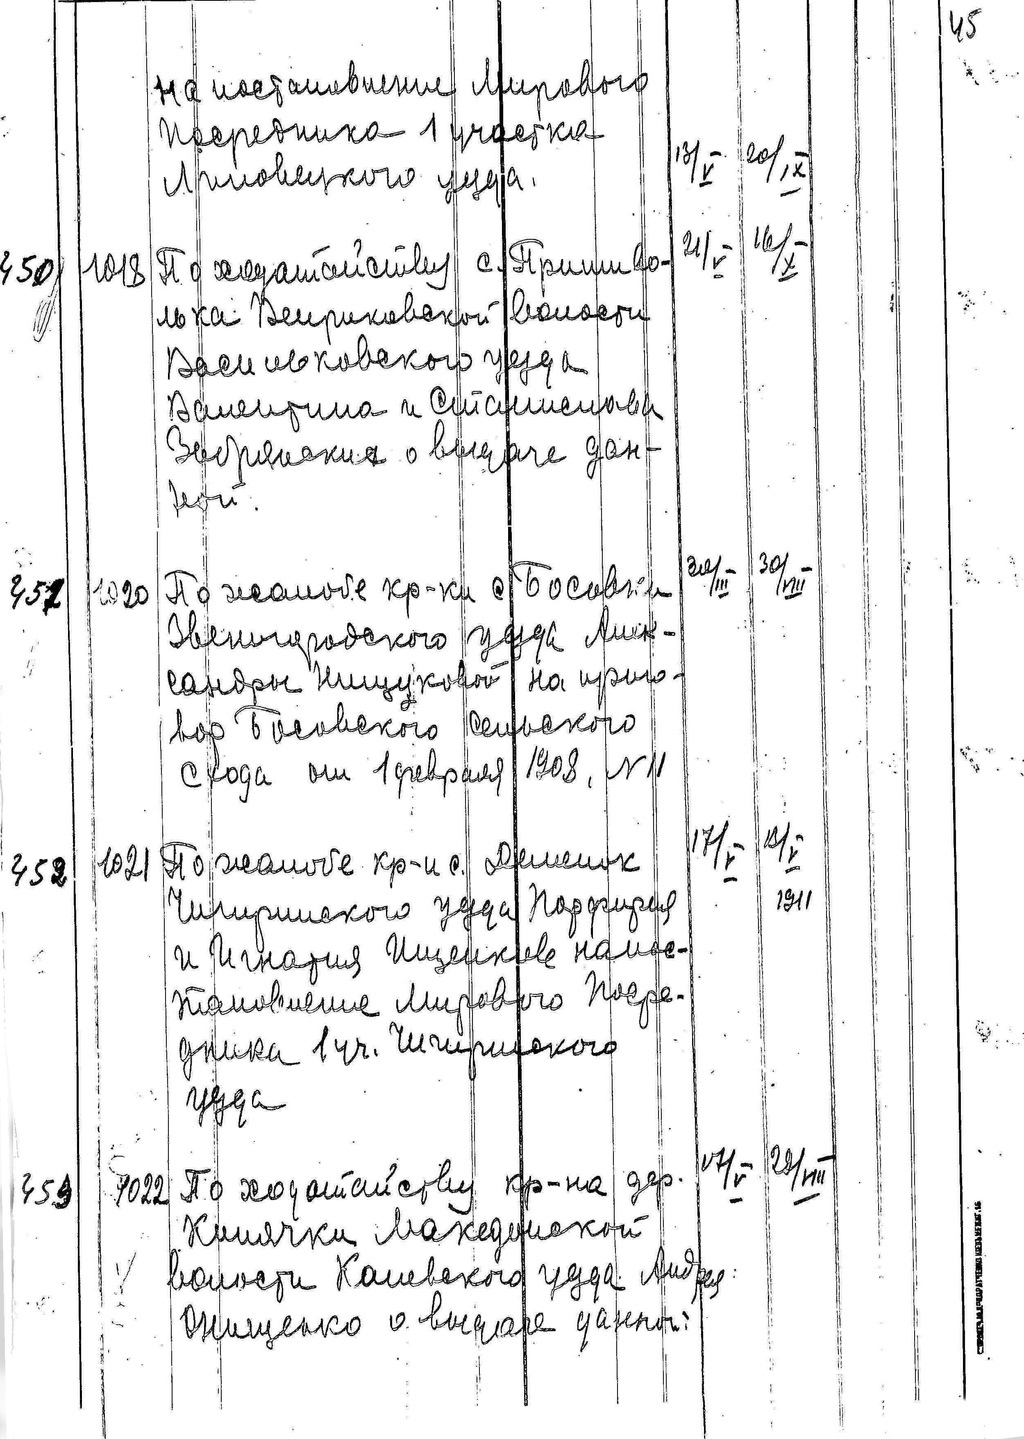 45
на постановление Мирового
Посредника 1 участка
Липовецкого уезда. 13/V 20/IX
450 1018 По ходатайству с. Пришиво- 21/V 16/X
лька Венриковской волости
Васильковского уезда
Валентина и Станислава
Забрянских о выдаче дан-
ной.
451 1020 По жалобе кр-ки с Босовки /III 30/VIII
Звенигородского уезда Алек-
сандры Нищуковой на приго-
вор Босовского Сельского
схода от 1 февраля 1908, N 11
452 1021 По жалобе кр-н с. Деменок 17/V /V
1911
Чигиринского уезда Порфирия
и Игнатия Ищенков на пос-
тановление Мирового Посре-
дника 1 уч. Чигиринского
уезда
453 1022 По ходатайству кр-на дер. 17/V 29/VIII
Кичячки Македонской
волости Каневского уезда Андрея
Онищенко о выдаче данной: